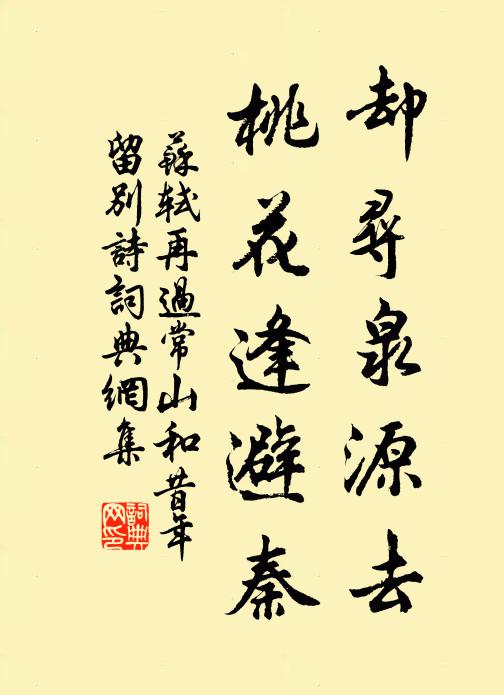 却尋泉源去
桃花逢避秦
蘇軾再過常山和昔年
留別詩詞典網集
詞典网印